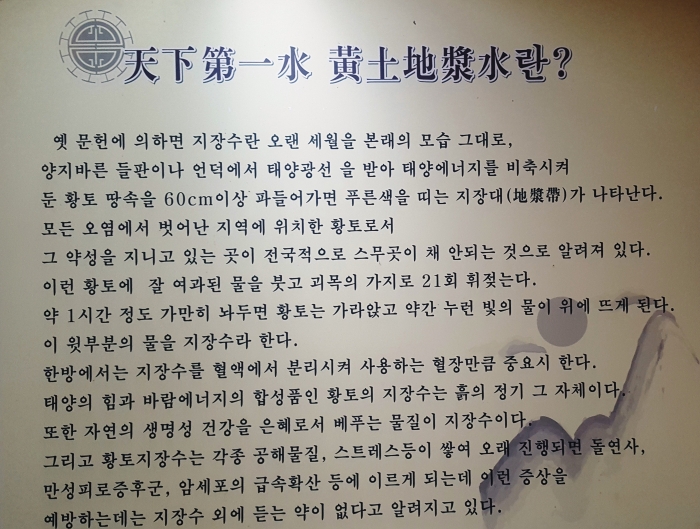 天下第一水 黃土地漿水란?
옛 문헌에 의하면 지장수란 오랜 세월을 본래의 모습 그대로,
양지바른 들판이나 언덕에서 태양광선 을 받아 태양에너지를 비축시켜
둔 황토 땅속을 60cm이상 파들어가면 푸른색을 띠는 지장대(地漿帶)가 나타난다.
모든 오염에서 벗어난 지역에 위치한 황토로서
그 약성을 지니고 있는 곳이 전국적으로 스무곳이 채 안되는 것으로 알려져 있다.
이런 황토에 잘 여과된 물을 붓고 괴목의 가지로 21회 휘젓는다.
약 1시간 정도 가만히 놔두면 황토는 가라앉고 약간 누런 빛의 물이 위에 뜨게 된다.
이 윗부분의 물을 지장수라 한다.
한방에서는 지장수를 혈액에서 분리시켜 사용하는 혈장만큼 중요시 한다.
태양의 힘과 바람에너지의 합성품인 황토의 지장수는 흙의 정기 그 자체이다.
또한 자연의 생명성 건강을 은혜로서 베푸는 물질이 지장수이다.
그리고 황토지장수는 각종 공해물질, 스트레스등이 쌓여 오래 진행되면 돌연사,
만성피로증후군, 암세포의 급속확산 등에 이르게 되는데 이런 증상을
예방하는데는 지장수 외에 듣는 약이 없다고 알려지고 있다.